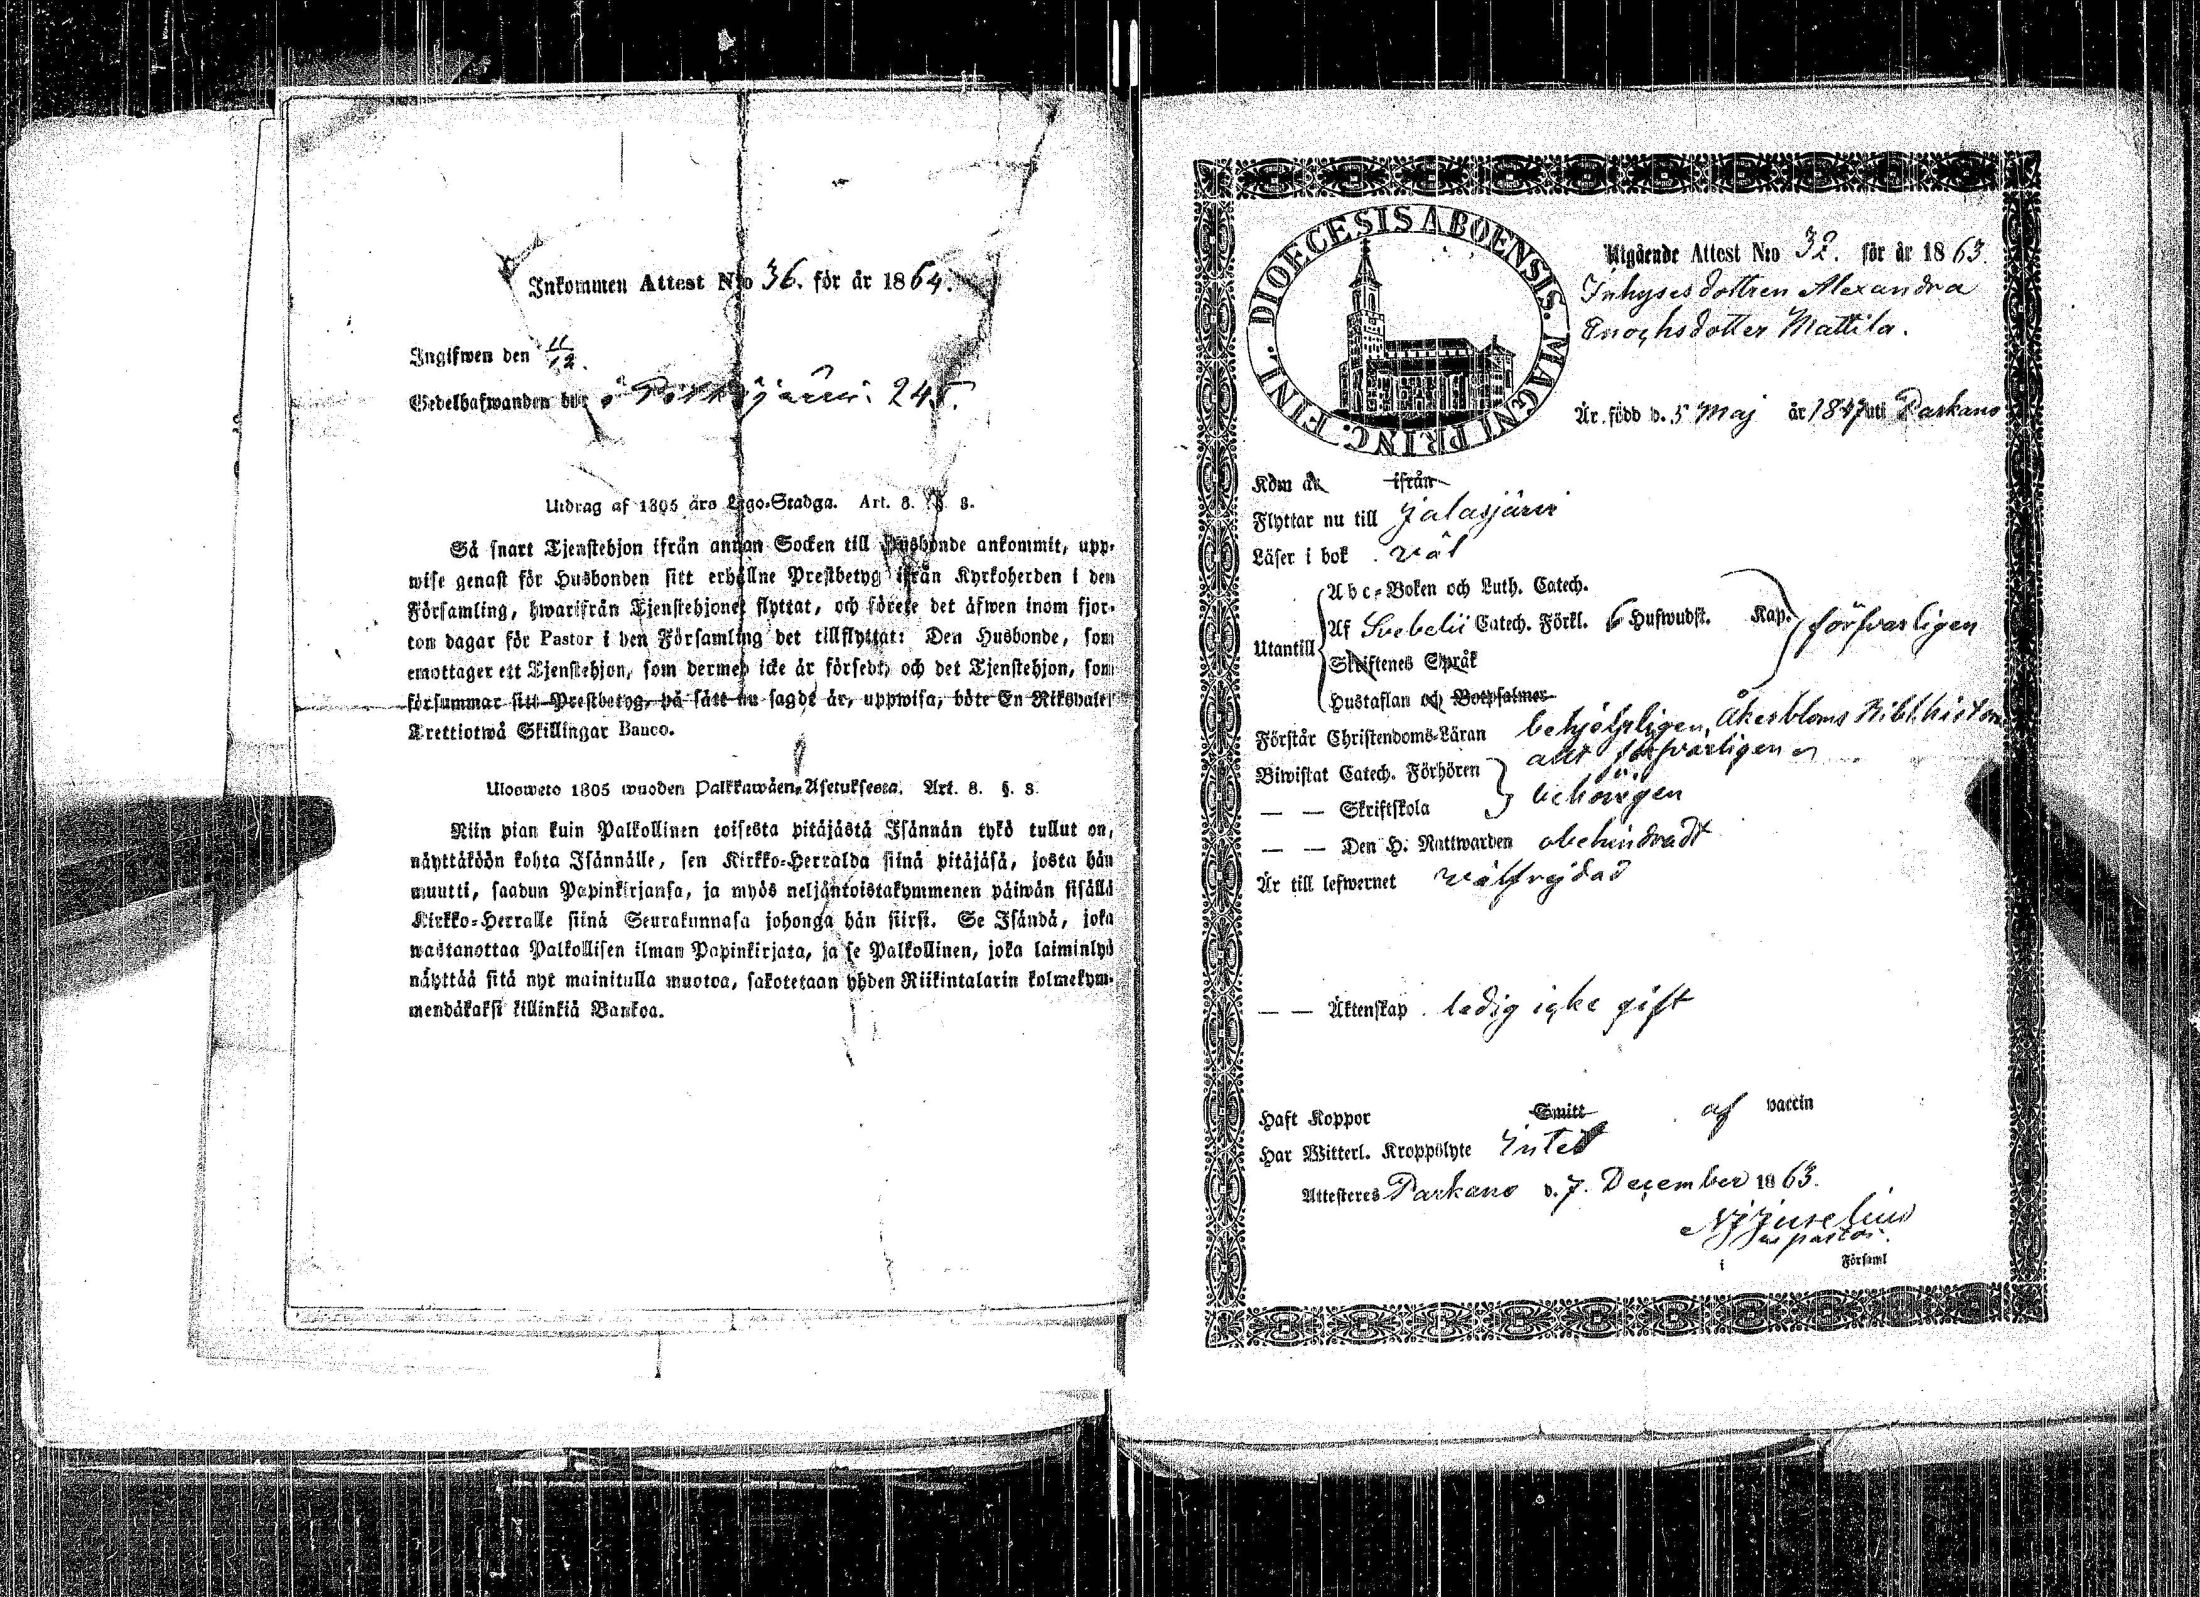 Inkommen Attest N:o 36. för år 1864.
Ingifwen den 11/12.
Sedelhafwanden bor i 245.
Utdrag af 1805 års Lego-Stadga. Art. 8. §. 8.
Så snart Tjenstehjon ifrån annan Socken till Husbonde ankommit, upp-
wise genast för Husbonden sitt erhållne Prestbetyg ifrån Kyrkoherden i den
Församling, hwarifrån Tjenstehjonet flyttat, och förete det äfwen inom fjor-
ton dagar för Pastor i den Församling det tillflyttat: Den Husbonde, som
emottager ett Tjenstehjon, som dermed icke är försedt, och det Tjenstehjon, som
försummar sitt Prestbetyg, på sätt nu sagdt är, uppwisa, böte En Riksdaler
Trettiotwå Skillingar Banco.
Ulosweto 1805 wuoden Palkkawäen-Asetuksesta. Art. 8. §. 8.
Niin pian kuin Palkollinen toisesta pitäjästä Isännän tykö tullut on,
näyttäköön kohta Isännälle, sen Kirkko-Herralda siinä pitäjäsä, josta hän
muutti, saadun Papinkirjansa, ja myös neljäntoistakymmenen päiwän sisällä
Kirkko-Herralle siinä Seurakunnasa johonga hän siirsi. Se Isändä, joka
wastanottaa Palkollisen ilman Papinkirjata, ja se Palkollinen, joka laiminlyö
näyttää sitä nyt mainitulla muotoa, sakotetaan yhden Riikintalarin kolmekym-
mendäkaksi killinkiä Bankoa.
DIOECESIS ABOENSIS. MAGNI PRINC. FINL.
Utgående Attest N:o 32. för år 1863.
Inhyses dottren Alexandra
Enochsdotter Mattila.
Är född d. 5 Maj år 1847 uti Parkano
Kom år ifrån
Flyttar nu till Jalasjärvi
Läser i bok väl
Utantill
Abc-Boken och Luth. Catech.
Af Svebelii Catech. Förkl. 6 Hufwudst. Kap. försvarligen
Skriftenes Språk
Hustaflan och Botpsalmer
Förstår Christendoms-Läran behjelpligen, Åkerbloms Bibl. histor.
allt försvarligen
Biwistat Catech. Förhören
— — Skriftskola behörigen
— — Den H. Nattwarden obehindradt
Är till lefwernet välfrejdad
— — Äktenskap ledig icke gift
Haft Koppor Smitt af vaccin
Har Witterl. Kroppslyte Intet
Attesteras Parkano d. 7. December 1863.
N J Juselius
pastor.
i Församl